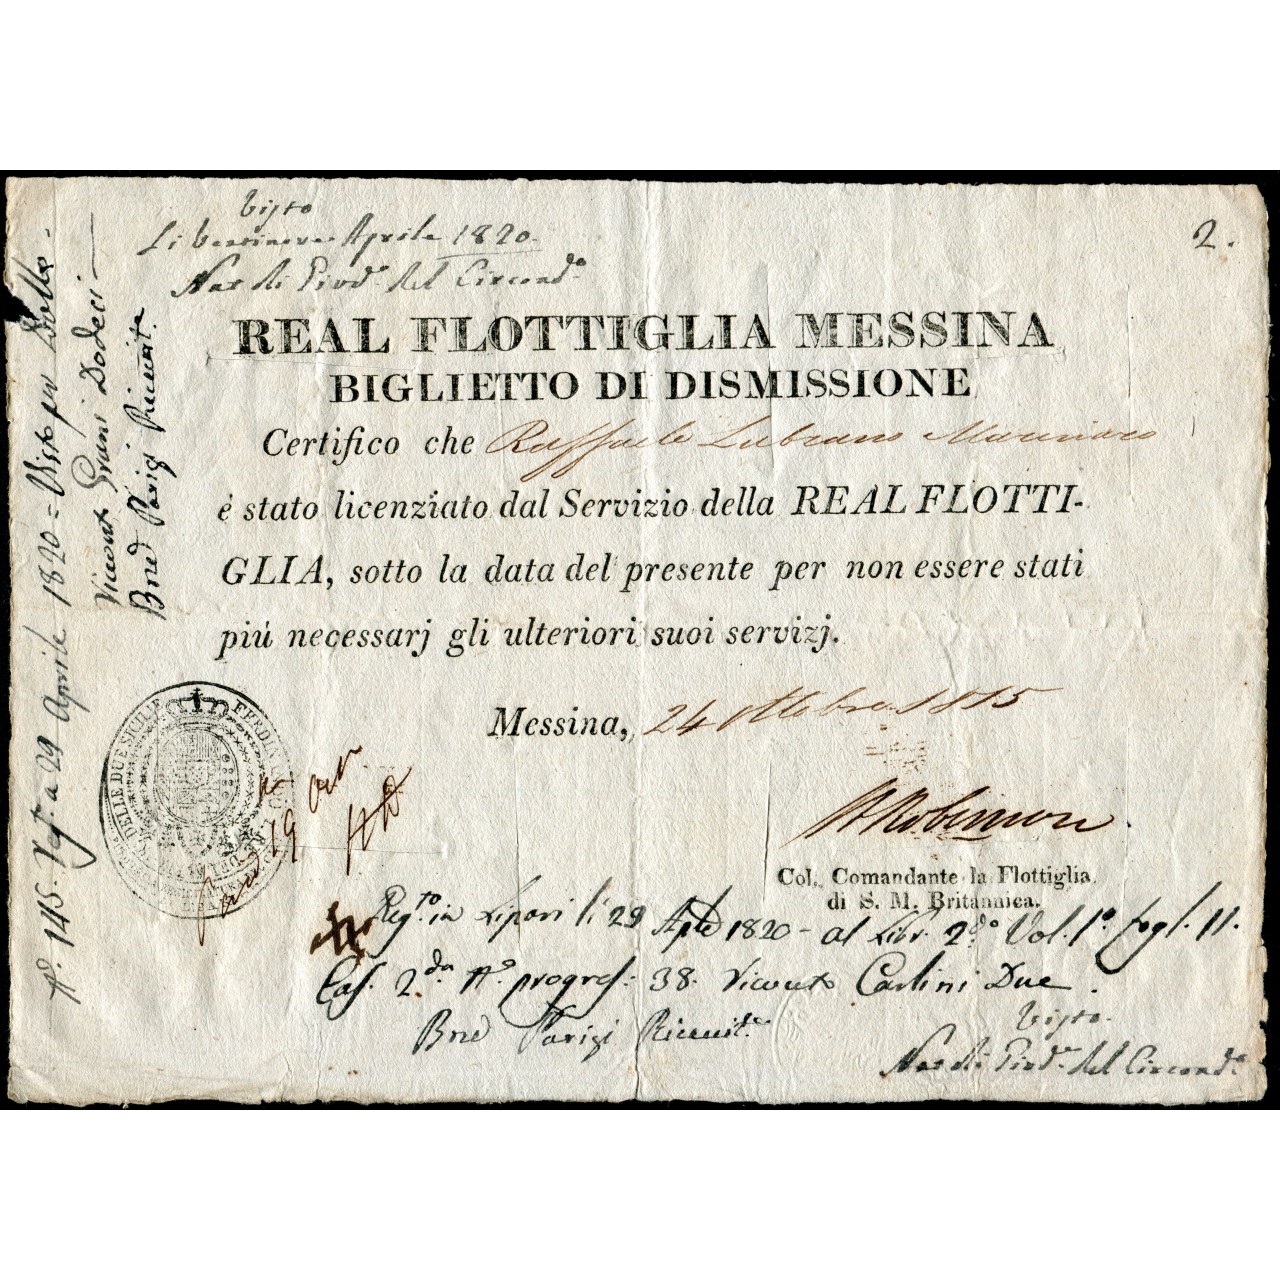 Visto
Li ventinove Aprile 1820.
Nardi Giud.e del Circond.o
2.
REAL FLOTTIGLIA MESSINA
BIGLIETTO DI DISMISSIONE
Certifico che Raffaele Lubrano Marinaro
è stato licenziato dal Servizio della REAL FLOTTI-
GLIA, sotto la data del presente per non essere stati
più necessarj gli ulteriori suoi servizj.
Messina, 24 ottobre 1815
Robinson
Col. Comandante la Flottiglia
di S. M. Britannica.
DELLE DUE SICILIE
N.o 145. a 29 Aprile 1820 = Visto per Bollo.
Grani Dodeci
Parigi Ricevit.e
19
Reg.to in Lipari li 29 Aple 1820 - al Libr. 2.do Vol. 1.o fogl. 11.
Cas. 2.da N.o progres: 38. Carlini Due.
Parigi Ricevit.e
Visto.
Nardi Giud.e del Circond.o